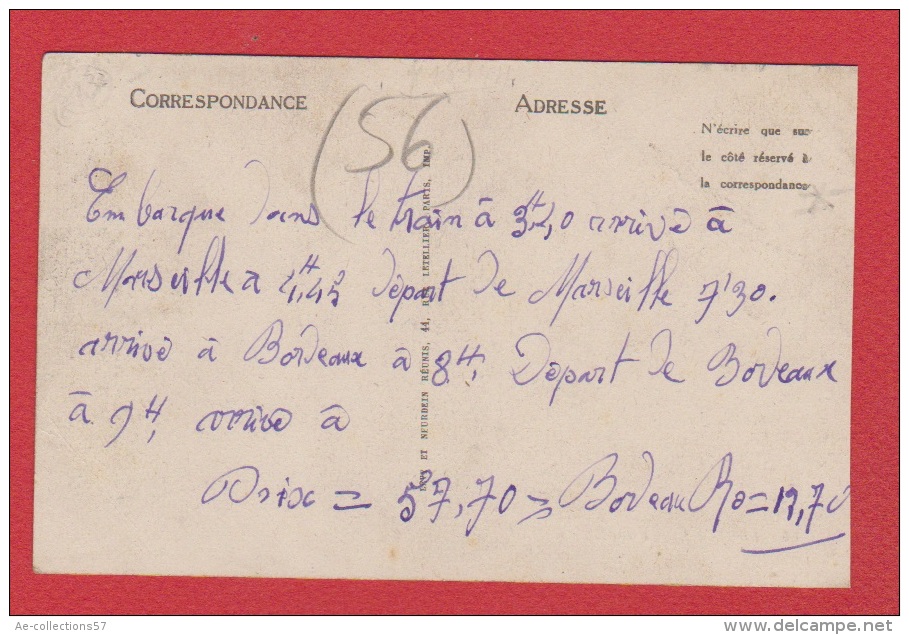 CORRESPONDANCE
ADRESSE
(56)
N'écrire que sur
le côté réservé à
la correspondance
Embarque dans le train à 3H,20 arrivé à
Marseille a 4H,45 départ de Marseille 7'30.
arrivé à Bordeaux à 8H, Départ de Bodeaux
à 9H, arrivé à
Prix = 57,70 = Bordeau = 12,70
ET NEURDEIN RÉUNIS, 44, RUE LETELLIER, PARIS, IMP.
Ae-collections57
www.delcampe.net